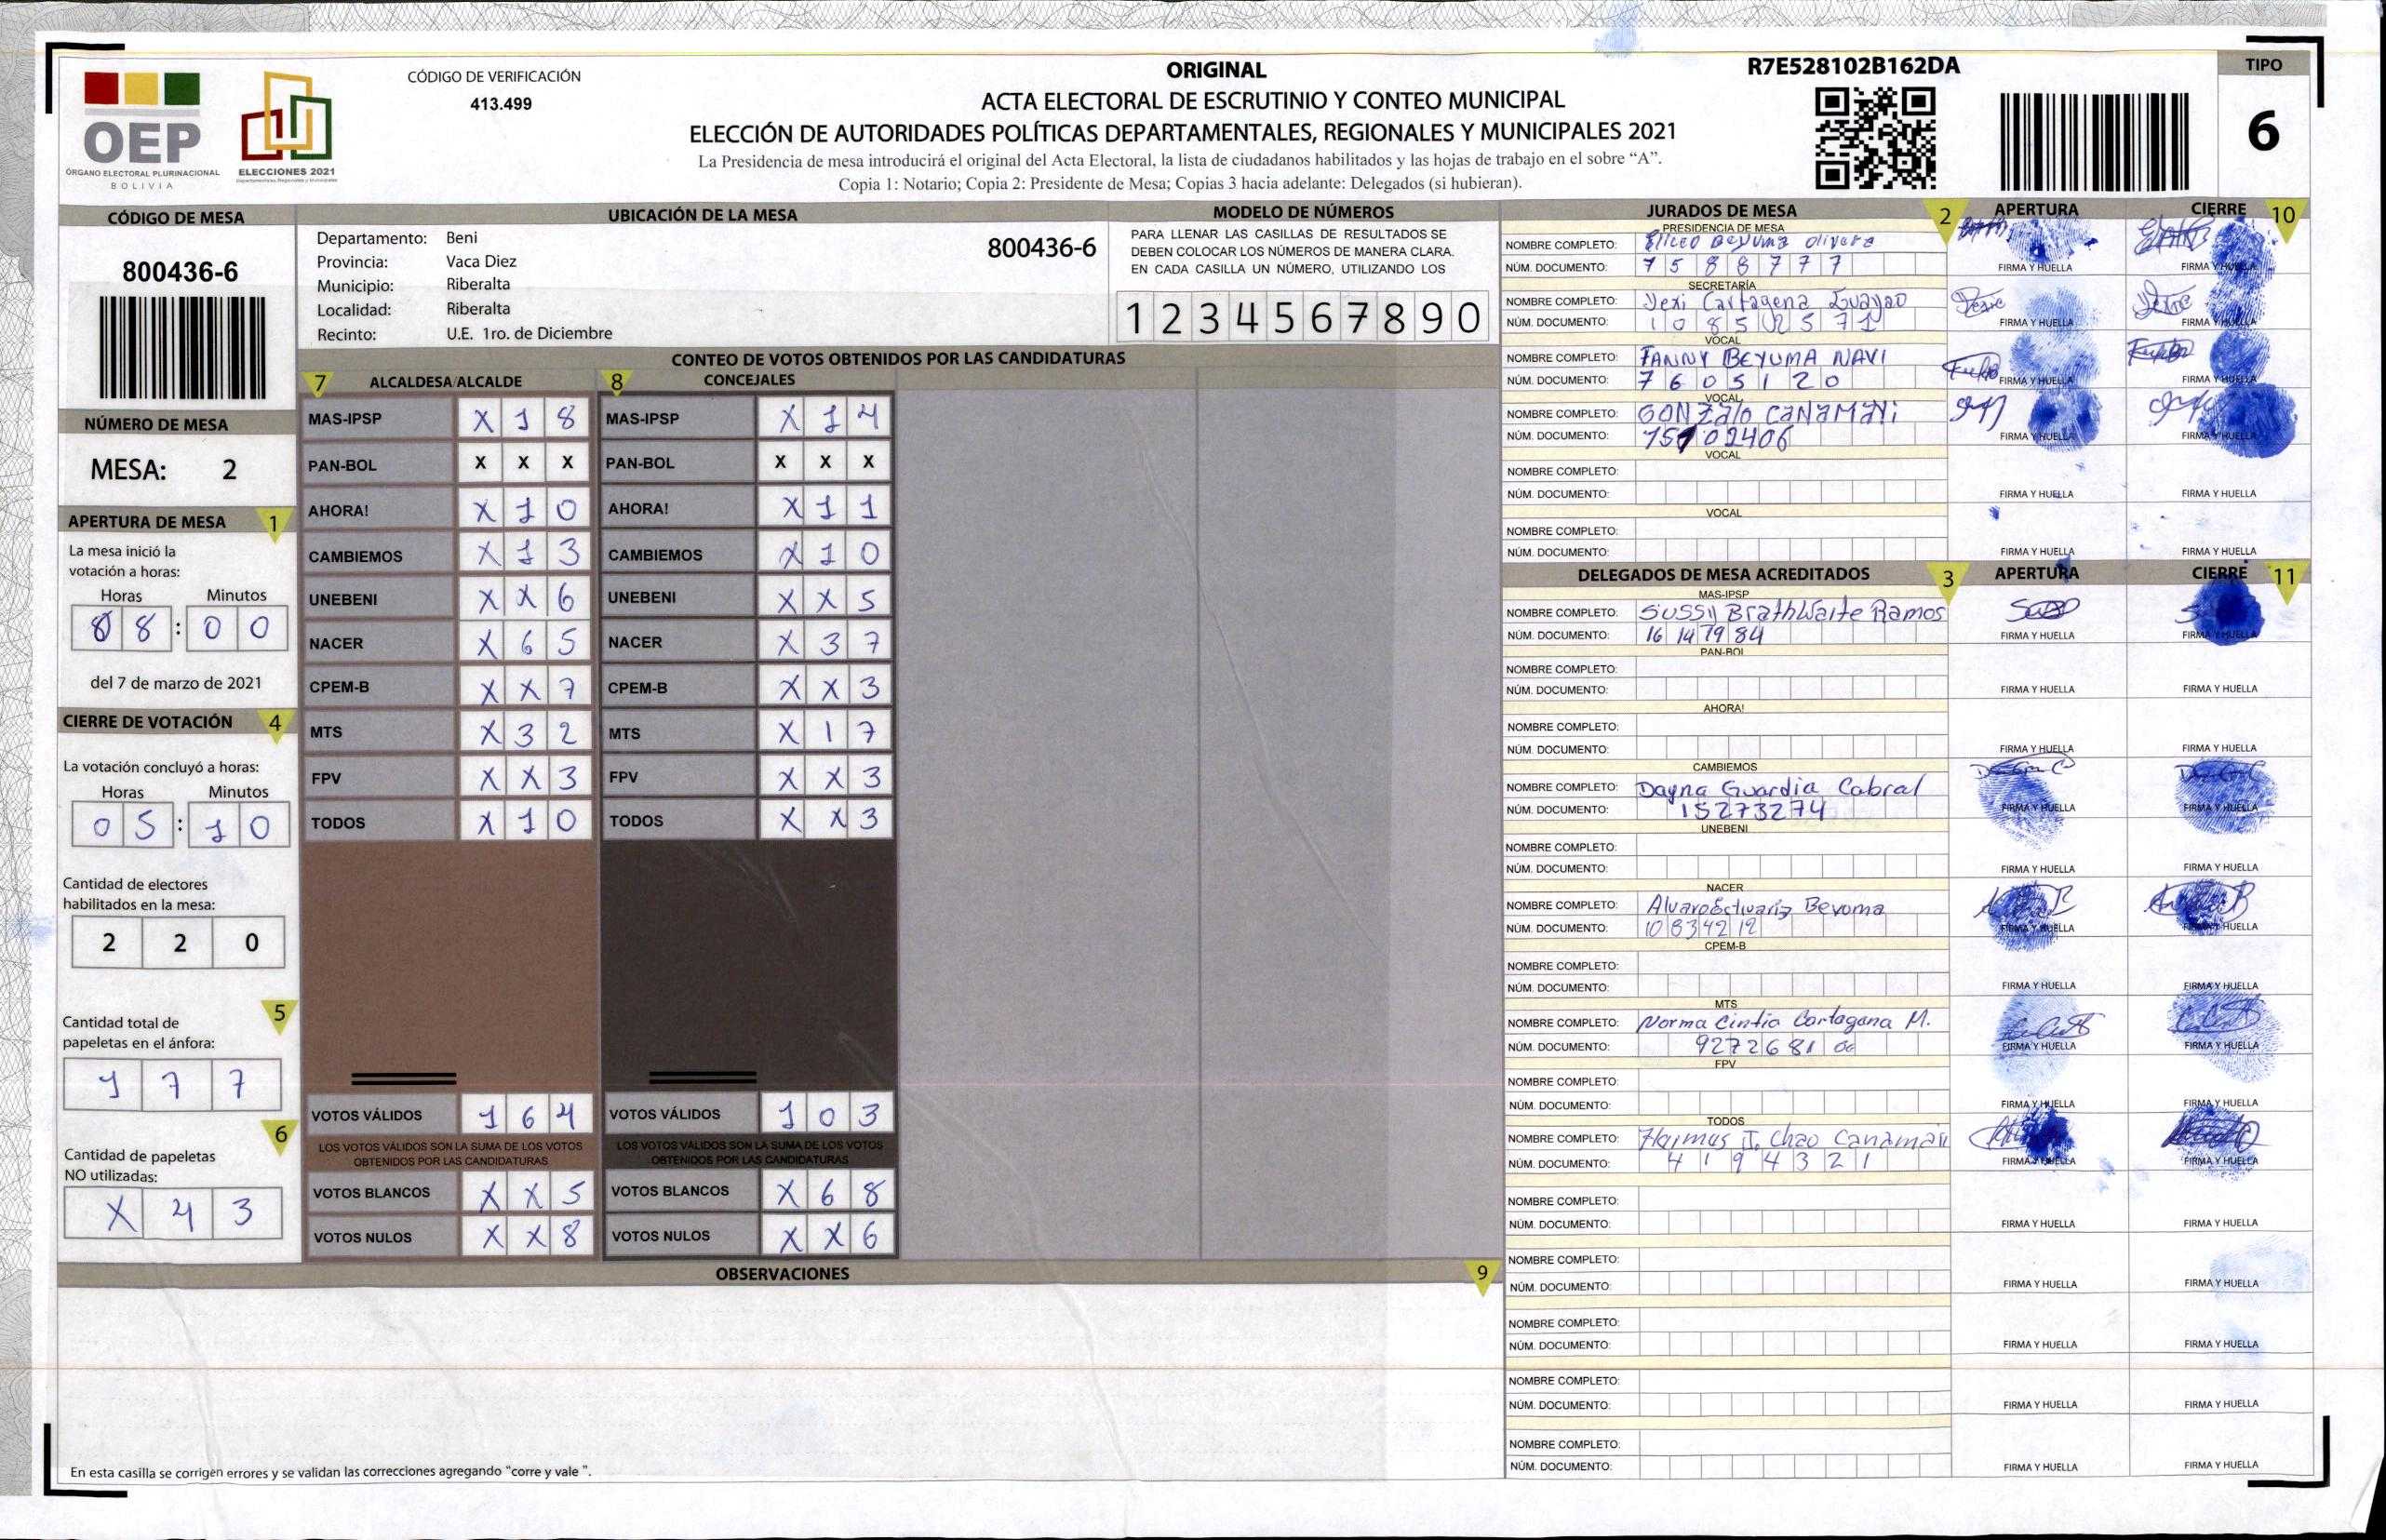 ORIGINAL
R7E528102B162DA
TIPO
6
OEP
ÓRGANO ELECTORAL PLURINACIONAL
BOLIVIA
ELECCIONES 2021
CÓDIGO DE VERIFICACIÓN
413.499
ACTA ELECTORAL DE ESCRUTINIO Y CONTEO MUNICIPAL
ELECCIÓN DE AUTORIDADES POLÍTICAS DEPARTAMENTALES, REGIONALES Y MUNICIPALES 2021
La Presidencia de mesa introducirá el original del Acta Electoral, la lista de ciudadanos habilitados y las hojas de trabajo en el sobre “A”.
Copia 1: Notario; Copia 2: Presidente de Mesa; Copias 3 hacia adelante: Delegados (si hubieran).
CÓDIGO DE MESA
800436-6
NÚMERO DE MESA
MESA: 2
APERTURA DE MESA 1
La mesa inició la
votación a horas:
Horas Minutos
08:00
del 7 de marzo de 2021
CIERRE DE VOTACIÓN 4
La votación concluyó a horas:
Horas Minutos
05:10
Cantidad de electores
habilitados en la mesa:
2 2 0
5
Cantidad total de
papeletas en el ánfora:
1 7 7
6
Cantidad de papeletas
NO utilizadas:
X 4 3
UBICACIÓN DE LA MESA
Departamento: Beni
800436-6
Provincia: Vaca Diez
Municipio: Riberalta
Localidad: Riberalta
Recinto: U.E. 1ro. de Diciembre
MODELO DE NÚMEROS
PARA LLENAR LAS CASILLAS DE RESULTADOS SE
DEBEN COLOCAR LOS NÚMEROS DE MANERA CLARA.
EN CADA CASILLA UN NÚMERO, UTILIZANDO LOS
1 2 3 4 5 6 7 8 9 0
CONTEO DE VOTOS OBTENIDOS POR LAS CANDIDATURAS
7 ALCALDESA/ALCALDE 8 CONCEJALES
MAS-IPSP X 1 8 MAS-IPSP X 1 4
PAN-BOL X X X PAN-BOL X X X
AHORA! X 1 0 AHORA! X 1 1
CAMBIEMOS X 1 3 CAMBIEMOS X 1 0
UNEBENI X X 6 UNEBENI X X 5
NACER X 6 5 NACER X 3 7
CPEM-B X X 7 CPEM-B X X 3
MTS X 3 2 MTS X 1 7
FPV X X 3 FPV X X 3
TODOS X 1 0 TODOS X X 3
VOTOS VÁLIDOS 1 6 4 VOTOS VÁLIDOS 1 0 3
LOS VOTOS VÁLIDOS SON LA SUMA DE LOS VOTOS LOS VOTOS VÁLIDOS SON LA SUMA DE LOS VOTOS
OBTENIDOS POR LAS CANDIDATURAS OBTENIDOS POR LAS CANDIDATURAS
VOTOS BLANCOS X X 5 VOTOS BLANCOS X 6 8
VOTOS NULOS X X 8 VOTOS NULOS X X 6
OBSERVACIONES 9
En esta casilla se corrigen errores y se validan las correcciones agregando “corre y vale ”.
JURADOS DE MESA 2 APERTURA CIERRE 10
PRESIDENCIA DE MESA
NOMBRE COMPLETO: Beyuma Olivera
NÚM. DOCUMENTO: 7588777
FIRMA Y HUELLA FIRMA Y HUELLA
SECRETARÍA
NOMBRE COMPLETO: Cartagena
NÚM. DOCUMENTO:
FIRMA Y HUELLA FIRMA Y HUELLA
VOCAL
NOMBRE COMPLETO: FANNY BEYUMA NAVI
NÚM. DOCUMENTO: 7605120
FIRMA Y HUELLA FIRMA Y HUELLA
VOCAL
NOMBRE COMPLETO: GONZalo CANAMARI
NÚM. DOCUMENTO:
FIRMA Y HUELLA FIRMA Y HUELLA
VOCAL
NOMBRE COMPLETO:
NÚM. DOCUMENTO:
FIRMA Y HUELLA FIRMA Y HUELLA
VOCAL
NOMBRE COMPLETO:
NÚM. DOCUMENTO:
FIRMA Y HUELLA FIRMA Y HUELLA
DELEGADOS DE MESA ACREDITADOS 3 APERTURA CIERRE 11
MAS-IPSP
NOMBRE COMPLETO: SUSSY BrathWaite Ramos
NÚM. DOCUMENTO: 16147984
FIRMA Y HUELLA FIRMA Y HUELLA
PAN-BOL
NOMBRE COMPLETO:
NÚM. DOCUMENTO:
FIRMA Y HUELLA FIRMA Y HUELLA
AHORA!
NOMBRE COMPLETO:
NÚM. DOCUMENTO:
FIRMA Y HUELLA FIRMA Y HUELLA
CAMBIEMOS
NOMBRE COMPLETO: Dayna Guardia Cabral
NÚM. DOCUMENTO: 15273274
FIRMA Y HUELLA FIRMA Y HUELLA
UNEBENI
NOMBRE COMPLETO:
NÚM. DOCUMENTO:
FIRMA Y HUELLA FIRMA Y HUELLA
NACER
NOMBRE COMPLETO: Alvaro Beyuma
NÚM. DOCUMENTO: 10834212
FIRMA Y HUELLA FIRMA Y HUELLA
CPEM-B
NOMBRE COMPLETO:
NÚM. DOCUMENTO:
FIRMA Y HUELLA FIRMA Y HUELLA
MTS
NOMBRE COMPLETO: Norma Cintia Cartagena M.
NÚM. DOCUMENTO: 9272681
FIRMA Y HUELLA FIRMA Y HUELLA
FPV
NOMBRE COMPLETO:
NÚM. DOCUMENTO:
FIRMA Y HUELLA FIRMA Y HUELLA
TODOS
NOMBRE COMPLETO: J. Chao Canamari
NÚM. DOCUMENTO: 4194321
FIRMA Y HUELLA FIRMA Y HUELLA
NOMBRE COMPLETO:
NÚM. DOCUMENTO:
FIRMA Y HUELLA FIRMA Y HUELLA
NOMBRE COMPLETO:
NÚM. DOCUMENTO:
FIRMA Y HUELLA FIRMA Y HUELLA
NOMBRE COMPLETO:
NÚM. DOCUMENTO:
FIRMA Y HUELLA FIRMA Y HUELLA
NOMBRE COMPLETO:
NÚM. DOCUMENTO:
FIRMA Y HUELLA FIRMA Y HUELLA
NOMBRE COMPLETO:
NÚM. DOCUMENTO:
FIRMA Y HUELLA FIRMA Y HUELLA